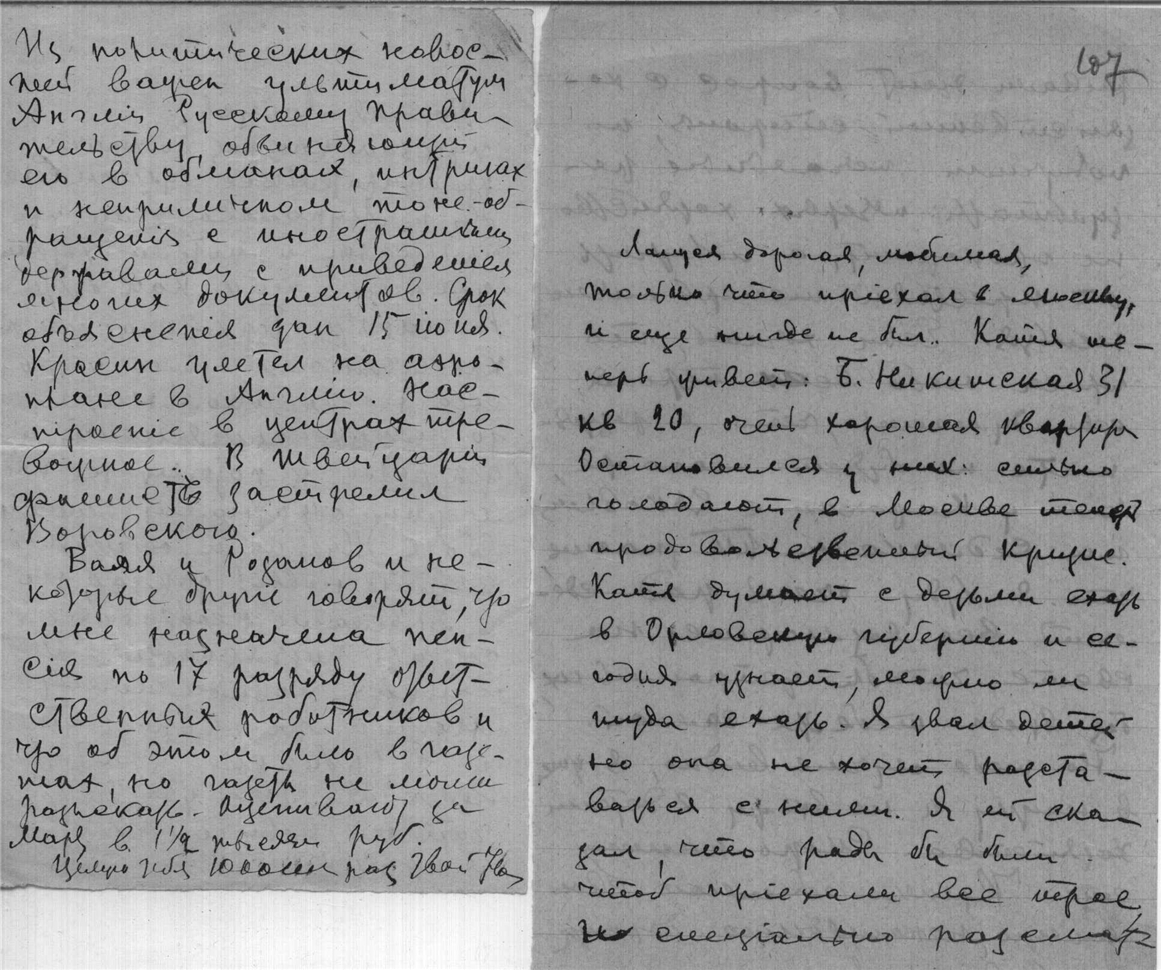 Из политических новос-
тей важен ультиматум
Англіи Русскому Прави-
тельству, обвиняющій
его в обманах, интригах
и неприличном тоне об-
ращенія с иностранными
державами с приведеніем
многих документов. Срок
объясненія дан 15 июня.
Красин улетел на аэро-
плане в Англію. Нас-
троеніе в центрах тре-
вожное. В Швейцаріи
фашистъ застрелил
Воровского.
Валя и Розанов и не-
которые другіе говорят, что
мне назначена пен-
сія по 17 разряду ответ-
ственных работников и
что об этом было в газе-
тах, но газеты не могли
разыскать. Оценивают за
март в 1½ тысячи руб.
Целую тебя 1000000 раз Твой
107
дорогая, любимая,
только что пріехал в Москву,
и еще нигде не был. Катя те-
перь живет: Б. Никитская 31
кв 20, очень хорошая квартира
Остановился у них: сильно
голодают, в Москве теперь
продовольственный кризис.
Катя думает с детьми ехать
в Орловскую губернію и се-
годня узнает, можно ли
туда ехать. Я звал детей
но она не хочет расста-
ваться с ними. Я ей ска-
зал, что рады бы были
чтоб пріехали все трое,
но спеціально